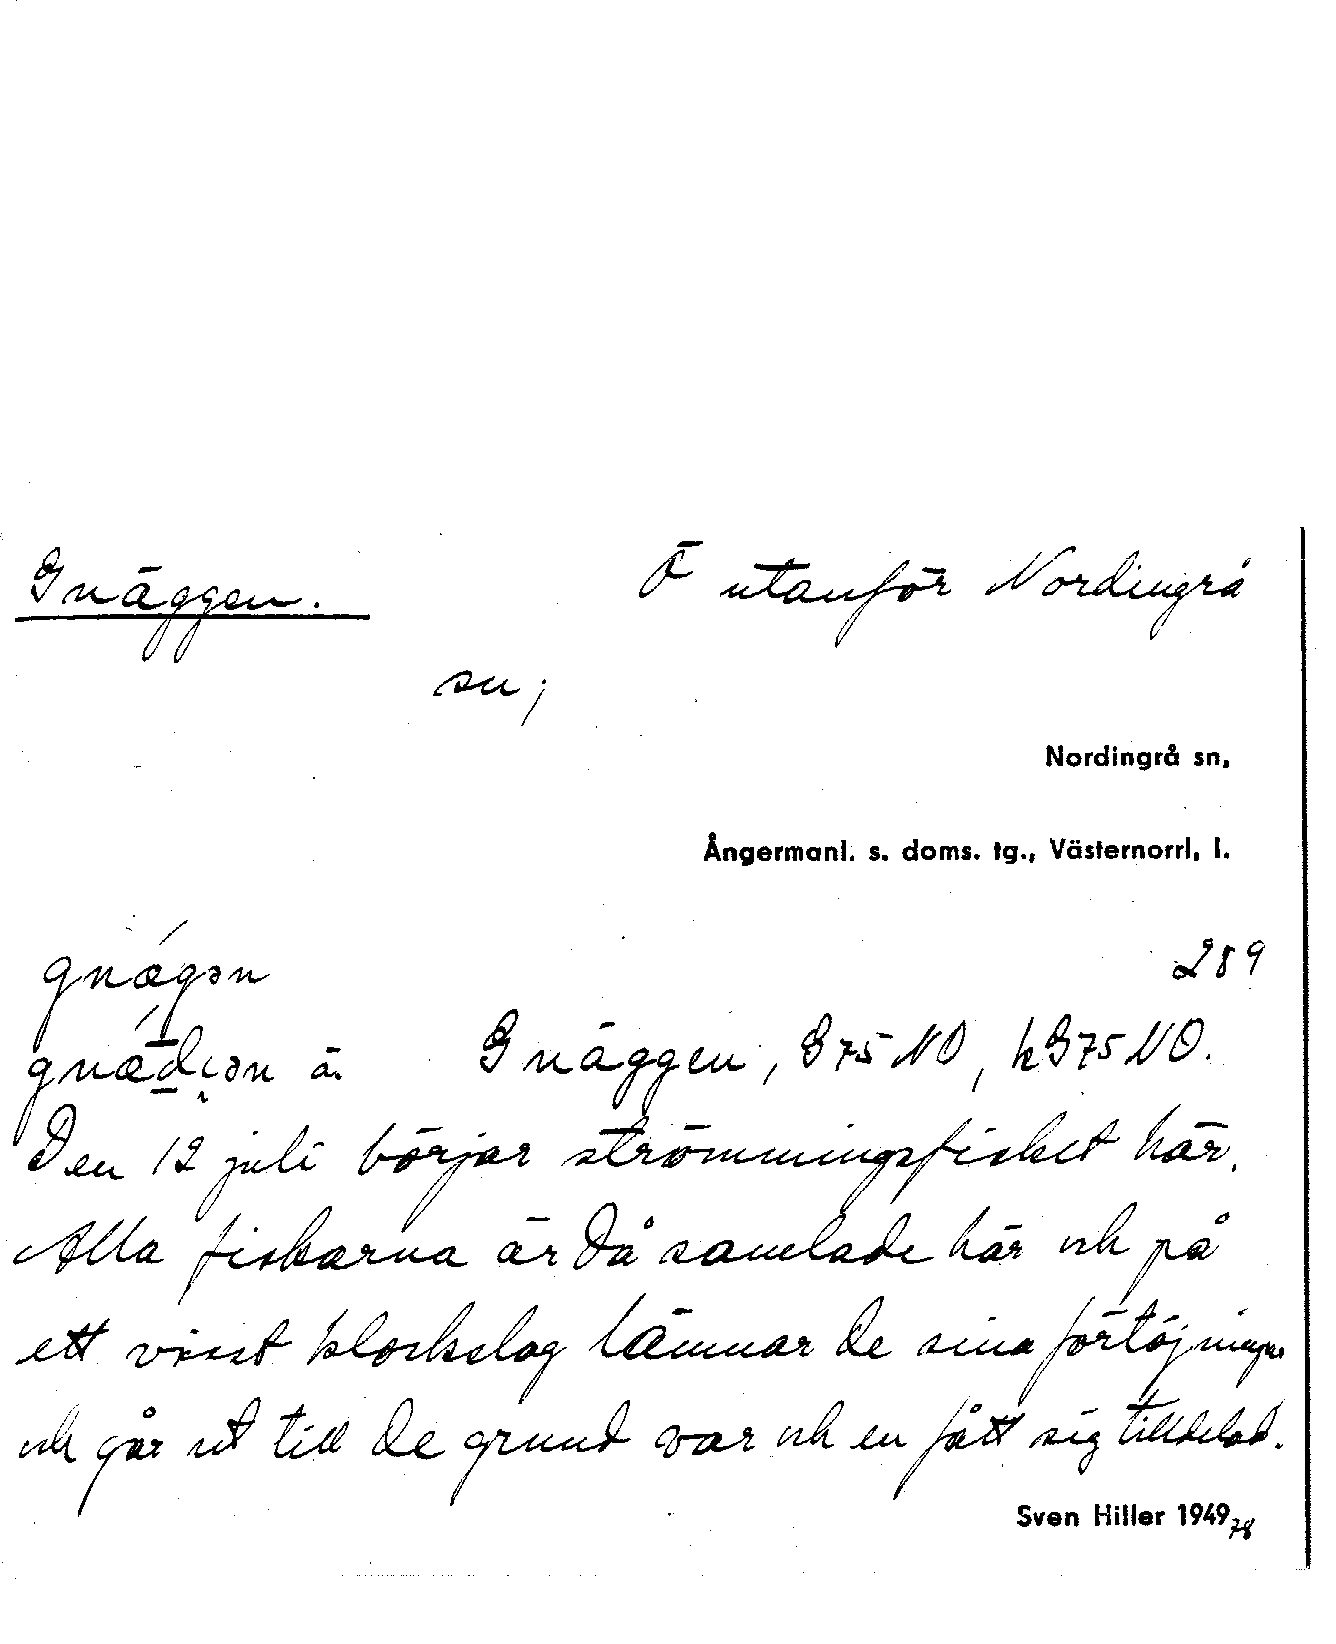 Gnäggen. Ö utanför Nordingrå
sn;
Nordingrå sn,
Ångermanl. s. doms. tg., Västernorrl, l.
gnǽgən 289
Gnäggen, G75NO, hG75NO.
Den 12 juli börjar strömmingsfisket här.
Alla fiskarna är då samlade här och på
ett visst klockslag lämnar de sina förtöjningar
och går ut till de grund var och en fått sig tilldelad.
Sven Hiller 1949 78